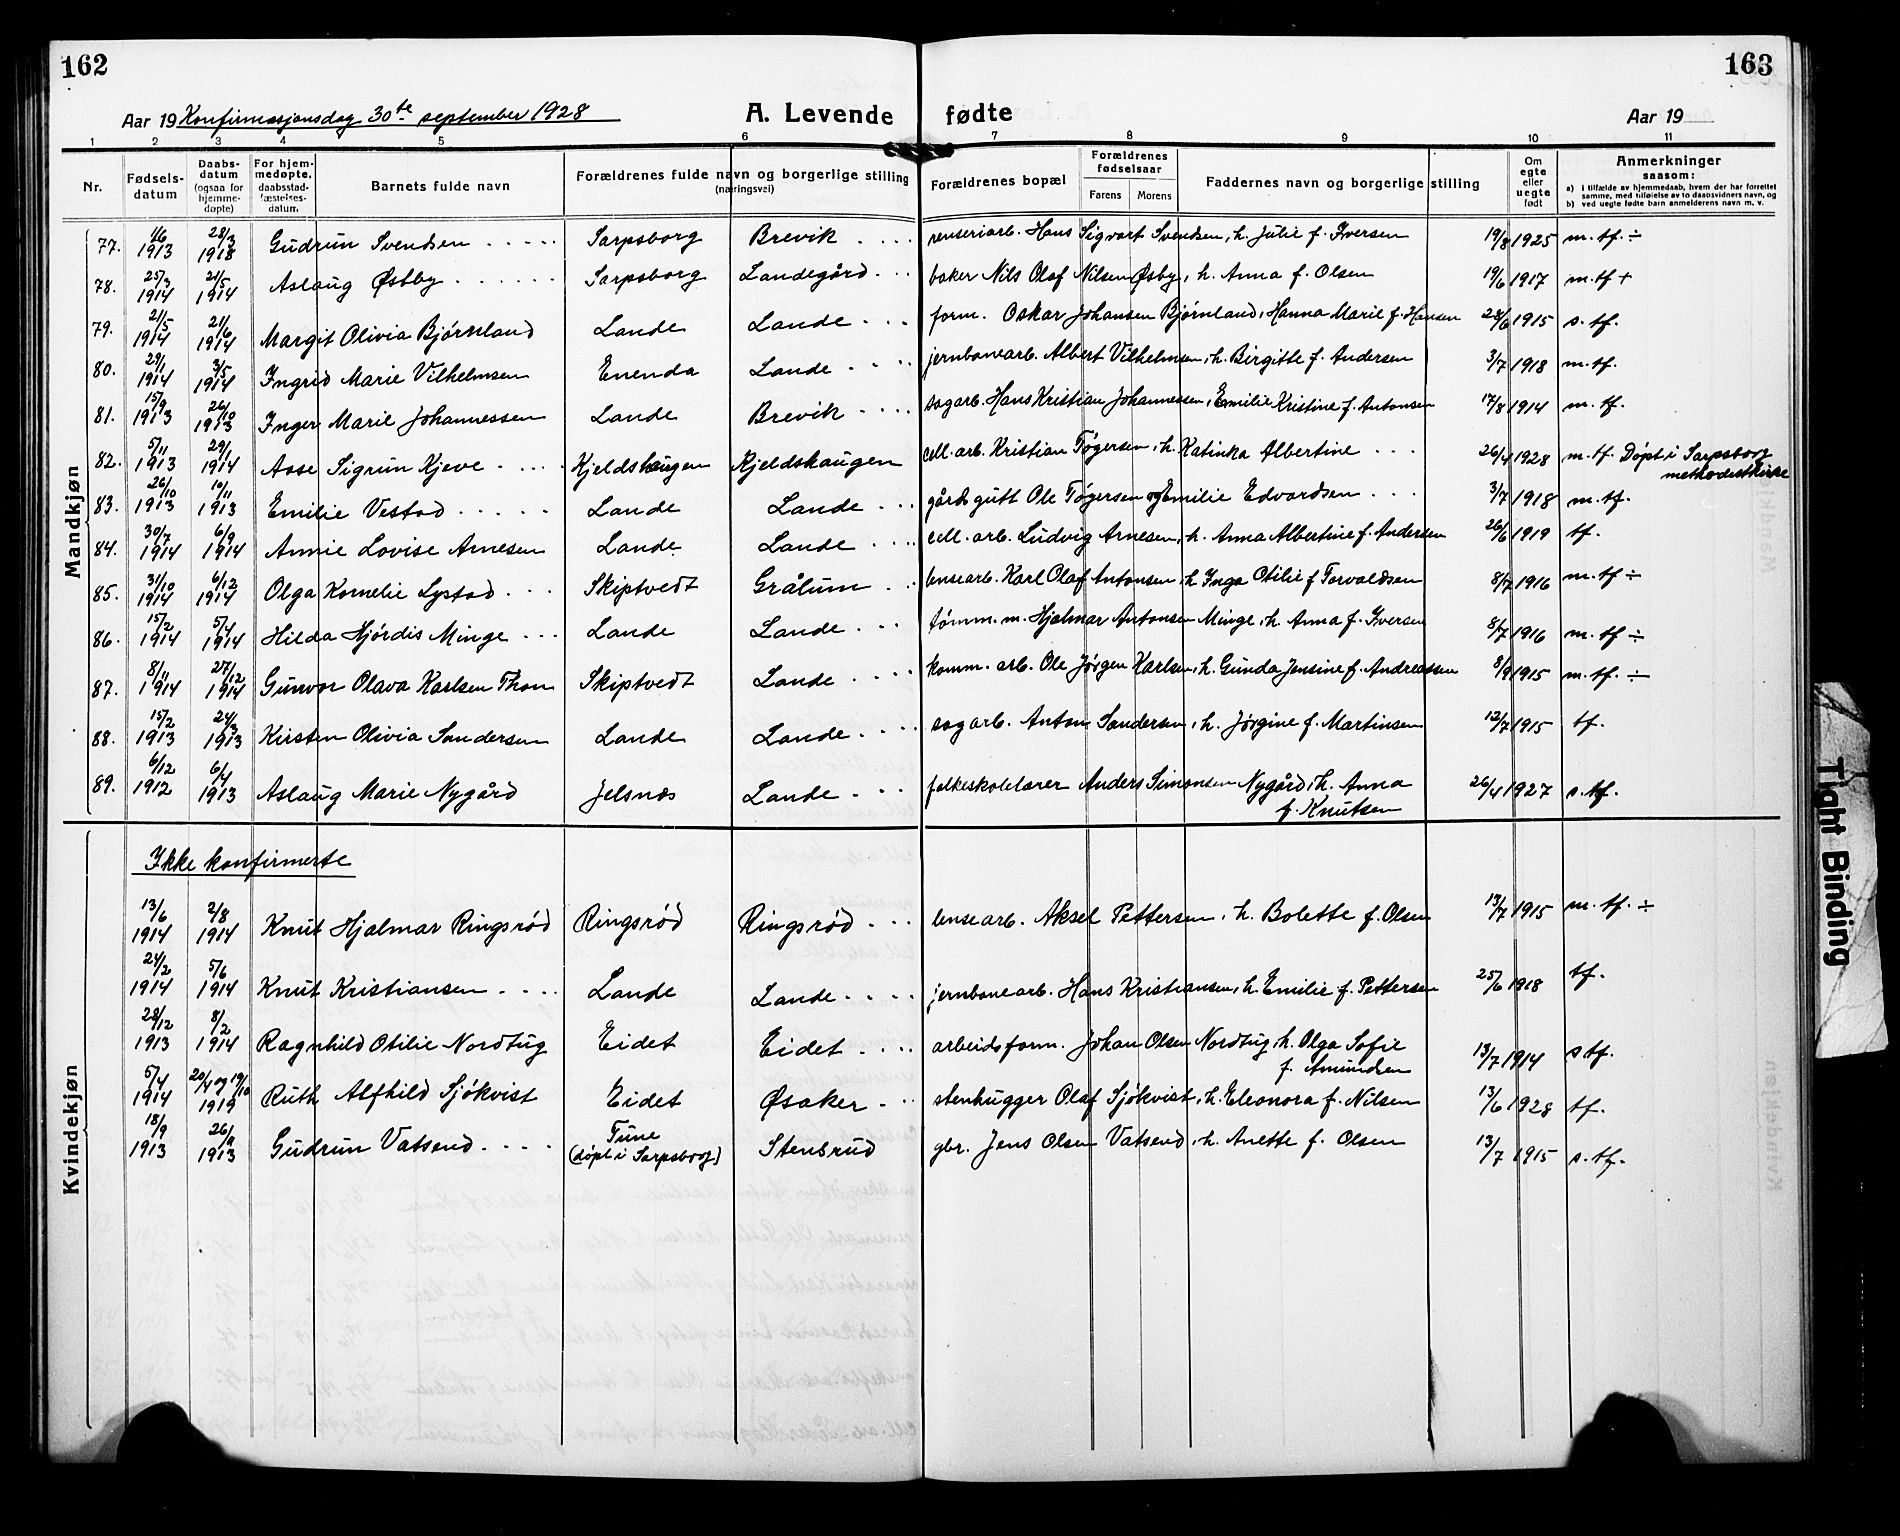 162
163
Aar 19 Konfirmasjonsdag 30te september 1928
A. Levende fødte
Aar 19
1 2 3 4 5 6 7 8 9 10 11
Nr. Fødsels-datum Daabs-datum (ogsaa for hjemme-døpte) For hjem-medøpte, daabsstad-fæstelses-datum. Barnets fulde navn Forældrenes fulde navn og borgerlige stilling (næringsvei) Forældrenes bopæl Forældrenes fødselsaar Farens Morens Faddernes navn og borgerlige stilling Om egte eller uegte født Anmerkninger saasom:
a) I tilfælde av hjemmedaab, hvem der har forrettet samme, med tilføielse av to daabsvidners navn, og
b) ved uegte fødte barn anmelderens navn m. v.
Mandkjøn
77. 1/6 1913 28/3 1918 Gudrun Svendsen Sarpsborg Brevik renseriarb. Hans Sigvart Svendsen, h. Julie f. Iversen 19/8 1925 m. tf. ÷
78. 25/3 1914 21/5 1914 Aslaug Østby Sarpsborg Landegård baker Nils Olaf Nilsen Øsby, h. Anna f. Olsen 19/6 1917 m. tf +
79. 21/5 1914 21/6 1914 Margit Olivia Bjørnland Lande Lande form. Oskar Johansen Bjørnland, Hanna Marie f. Hansen 28/6 1915 s. tf.
80. 29/1 1914 3/5 1914 Ingrid Marie Vilhelmsen Enenda Lande jernbanearb. Albert Vilhelmsen, h. Birgitte f. Andersen 3/7 1918 m. tf.
81. 15/9 1913 26/10 1913 Inger Marie Johannessen Lande Brevik sagarb. Hans Kristian Johannessen, Emilie Kristine f. Antonsen 17/8 1914 m. tf.
82. 5/11 1913 29/1 1914 Aase Sigrun Kjeve Kjeldshaugen Kjeldshaugen cell. arb. Kristian Tøgersen, h. Katinka Albertine 26/4 1928 m. tf. Døpt i Sarpsborg
methodistkirke
83. 26/10 1913 10/11 1913 Emilie Vestad Lande Lande gårdsgutt Ole Tøgersen og Emilie Edvardsen 3/7 1918 m. tf.
84. 30/7 1914 6/9 1914 Annie Lovise Arnesen Lande Lande cell. arb. Ludvig Arnesen, h. Anna Albertine f. Andersen 26/6 1919 tf.
85. 31/10 1914 6/12 1914 Olga Kornelie Lystad Skiptvedt Grålum lensearb. Karl Olaf Antonsen, h Inga Otilie f Torvaldsen 8/7 1916 m. tf ÷
86. 15/2 1914 5/4 1914 Hilda Hjørdis Minge Lande Lande tømm. m. Hjalmar Antonsen Minge, h. Anna f. Iversen 8/7 1916 m. tf ÷
87. 8/11 1914 27/12 1914 Gunvor Olava Karlsen Thon Skiptvedt Lande komm. arb. Ole Jørgen Karlsen, h. Gunda Jensine f. Andreassen 8/9 1915 m. tf. ÷
88. 15/2 1913 24/3 1913 Kirsten Olivia Sandersen Lande Lande sagarb. Anton Sandersen, h. Jørgine f. Martinsen 12/7 1915 tf.
89. 6/12 1912 6/4 1913 Aslaug Marie Nygård Jelsnæs Lande folkeskolelærer Anders Simonsen Nygård, h. Anna
f. Knutsen 26/4 1927 s. tf.
Kvindekjøn
Ikke konfirmerte
13/6 1914 2/8 1914 Knut Hjalmar Ringsrød Ringsrød Ringsrød lensearb. Aksel Pettersen, h. Bolette f. Olsen 13/7 1915 m. tf. ÷
24/2 1914 5/6 1914 Knut Kristiansen Lande Lande jernbanearb. Hans Kristiansen, h. Emilie f. Pettersen 25/6 1918 tf.
28/12 1913 8/2 1914 Ragnhild Otilie Nordtug Eidet Eidet arbeidsform. Johan Olsen Nordtug, h. Olga Sofie
f. Amundsen 13/7 1914 s tf.
5/4 1914 20/4 og 19/10 1919 Ruth Alfhild Sjökvist Eidet Øsaker stenhugger Olaf Sjökvist, h. Eleonora f. Nilsen 13/6 1928 tf.
18/9 1913 26/9 1913 Gudrun Vatsend Tune
(døpt i Sarpsborg) Stensrud gbr. Jens Olsen Vatsend, h. Anette f. Olsen 13/7 1915 s. tf.
Tight Binding